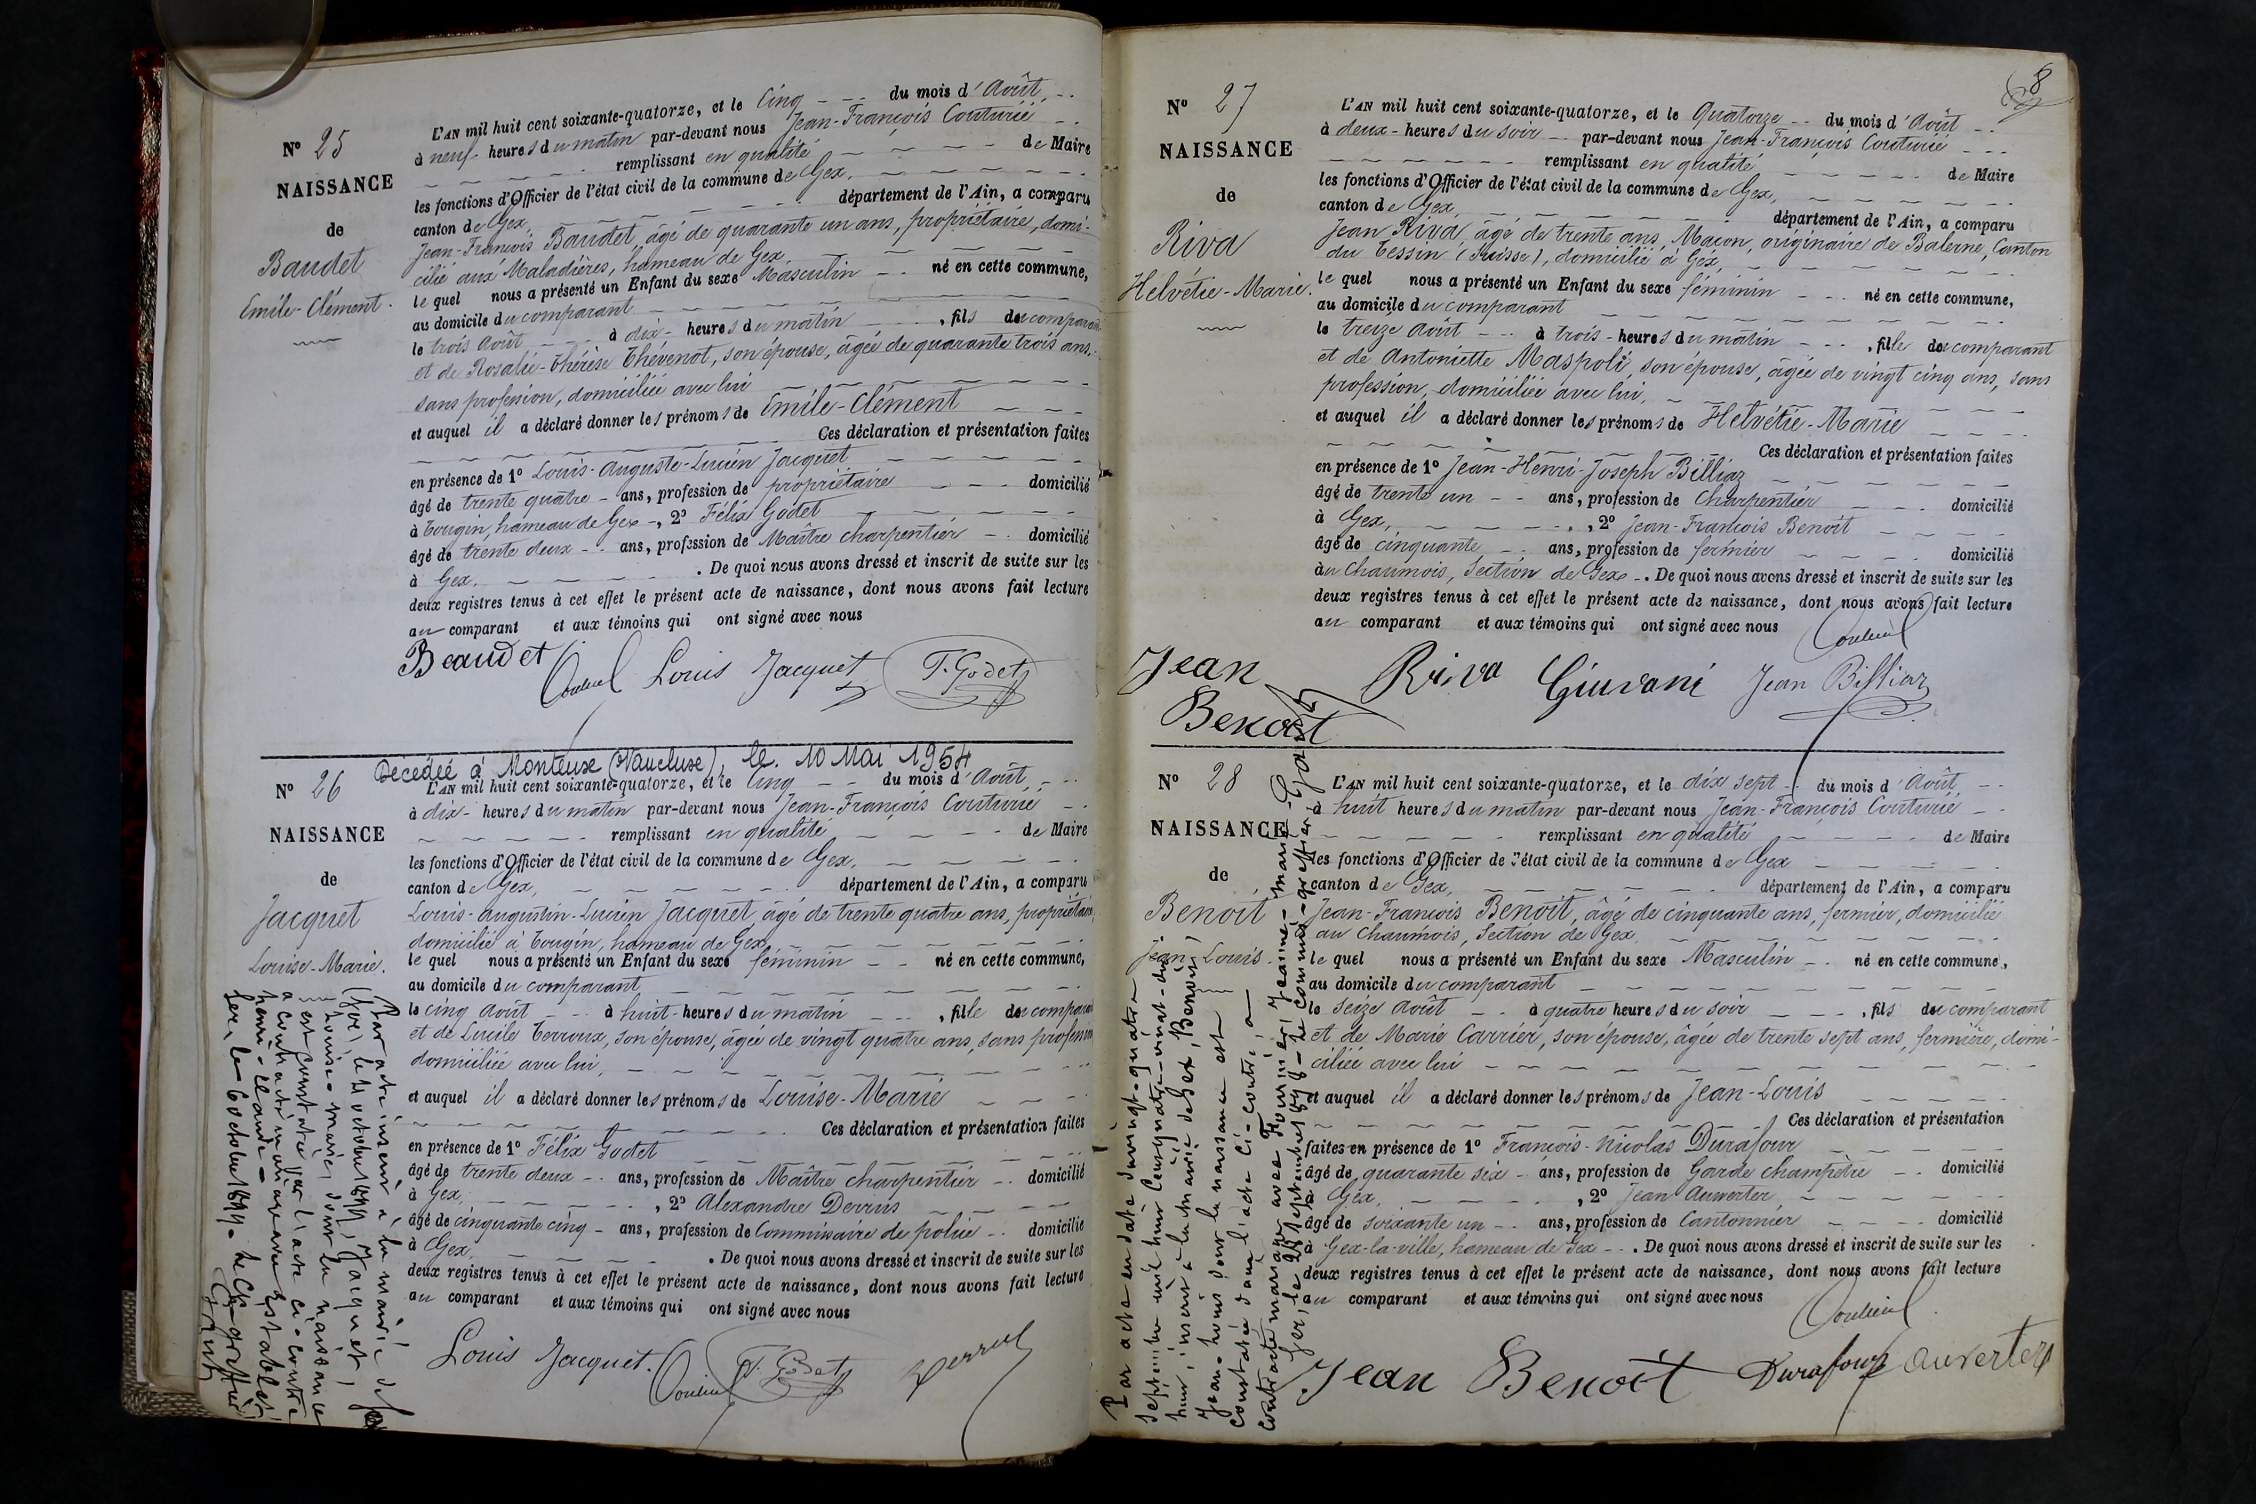 N° 25
NAISSANCE
de
Baudet
Emile-Clément.
L'AN mil huit cent soixante-quatorze, et le Cinq du mois d'Août
à neuf heures du matin par-devant nous Jean-François Couturié
remplissant en qualité de Maire
les fonctions d'Officier de l'état civil de la commune de Gex,
canton de Gex, département de l'Ain, a comparu
Jean-François Baudet, âgé de quarante un ans, propriétaire, domi-
cilié aux Maladières, hameau de Gex,
le quel nous a présenté un Enfant du sexe Masculin né en cette commune,
au domicile du comparant
le trois Août à dix heures du matin, fils du comparant
et de Rosalie-Thérèse Thévenot, son épouse, âgée de quarante trois ans,
sans profession, domiciliée avec lui
et auquel il a déclaré donner les prénoms de Emile-Clément
Ces déclaration et présentation faites
en présence de 1° Louis-Auguste-Lucien Jacquet
âgé de trente quatre ans, profession de propriétaire domicilié
à Tougin, hameau de Gex, 2° Félix Godet
âgé de trente deux ans, profession de Maître charpentier domicilié
à Gex. De quoi nous avons dressé et inscrit de suite sur les
deux registres tenus à cet effet le présent acte de naissance, dont nous avons fait lecture
au comparant et aux témoins qui ont signé avec nous
Beaudet Louis Jacquet F. Godet
Décédée à Monteux (Vaucluse), le 10 Mai 1954
N° 26
NAISSANCE
de
Jacquet
Louise-Marie.
L'AN mil huit cent soixante-quatorze, et le Cinq du mois d'Août
à dix heures du matin par-devant nous Jean-François Couturié
remplissant en qualité de Maire
les fonctions d'Officier de l'état civil de la commune de Gex,
canton de Gex, département de l'Ain, a comparu
Louis-Augustin-Lucien Jacquet, âgé de trente quatre ans, propriétaire
domicilié à Tougin, hameau de Gex,
le quel nous a présenté un Enfant du sexe féminin né en cette commune,
au domicile du comparant
le cinq Août à huit heures du matin, fille du comparant
et de Lucile Terroux, son épouse, âgée de vingt quatre ans, sans profession
domiciliée avec lui,
et auquel il a déclaré donner les prénoms de Louise-Marie
Ces déclaration et présentation faites
en présence de 1° Félix Godet
âgé de trente deux ans, profession de Maître charpentier domicilié
à Gex, 2° Alexandre Derrus
âgé de cinquante cinq ans, profession de Commissaire de police domicilié
à Gex. De quoi nous avons dressé et inscrit de suite sur les
deux registres tenus à cet effet le présent acte de naissance, dont nous avons fait lecture
au comparant et aux témoins qui ont signé avec nous
Louis Jacquet. F. Godet
Par acte inséré à la mairie de
Gex, le 4 octobre 1899, Jacquet,
Louise-Marie, dont la naissance
est constatée par l'acte ci-contre
a contracté mariage avec
henri-claude
Gex, le 6 octobre 1899. Le Cis-greffier
8
N° 27
NAISSANCE
de
Riva
Helvétie-Marie.
L'AN mil huit cent soixante-quatorze, et le Quatorze du mois d'Août
à deux heures du soir par-devant nous Jean-François Couturié
remplissant en qualité de Maire
les fonctions d'Officier de l'état civil de la commune de Gex,
canton de Gex, département de l'Ain, a comparu
Jean Riva âgé de trente ans, Maçon, originaire de Balerne, Canton
du Tessin (Suisse), domicilié à Gex,
le quel nous a présenté un Enfant du sexe féminin né en cette commune,
au domicile du comparant
le treize Août à trois heures du matin, fille du comparant
et de Antoniette Maspoli, son épouse, âgée de vingt cinq ans, sans
profession, domiciliée avec lui,
et auquel il a déclaré donner les prénoms de Helvétie-Marie
Ces déclaration et présentation faites
en présence de 1° Jean-Henri-Joseph Billiaz
âgé de trente un ans, profession de Charpentier domicilié
à Gex, 2° Jean-François Benoit
âgé de cinquante ans, profession de fermier domicilié
au Chaumois, Section de Gex. De quoi nous avons dressé et inscrit de suite sur les
deux registres tenus à cet effet le présent acte de naissance, dont nous avons fait lecture
au comparant et aux témoins qui ont signé avec nous
Jean Benoit Riva Giuvani Jean Billiaz
N° 28
NAISSANCE
de
Benoit
Jean-Louis.
L'AN mil huit cent soixante-quatorze, et le dix sept du mois d'Août
à huit heures du matin par-devant nous Jean-François Couturié
remplissant en qualité de Maire
les fonctions d'Officier de l'état civil de la commune de Gex
canton de Gex, département de l'Ain, a comparu
Jean-François Benoit, âgé de cinquante ans, fermier, domicilié
au Chaumois, Section de Gex,
le quel nous a présenté un Enfant du sexe Masculin né en cette commune,
au domicile du comparant
le seize Août à quatre heures du soir, fils du comparant
et de Marie Carrier, son épouse, âgée de trente sept ans, fermière, domi-
ciliée avec lui
et auquel il a déclaré donner les prénoms de Jean-Louis
Ces déclaration et présentation
faites en présence de 1° François-Nicolas Durafour
âgé de quarante six ans, profession de Garde champêtre domicilié
à Gex, 2° Jean Auverter
âgé de soixante un ans, profession de Cantonnier domicilié
à Gex-la-ville, hameau de Gex. De quoi nous avons dressé et inscrit de suite sur les
deux registres tenus à cet effet le présent acte de naissance, dont nous avons fait lecture
au comparant et aux témoins qui ont signé avec nous
Jean Benoit Durafour Auverter
Par acte en date du vingt-quatre
septembre mil huit cent quatre-vingt-dix-
huit, inscrit à la mairie de Gex, Benoit,
Jean-Louis dont la naissance est
constatée dans l'acte ci-contre, a
contracté mariage avec Fournier, Jeanne-Marie
Gex, le 25 septembre 1898 - Le commis-greffier,